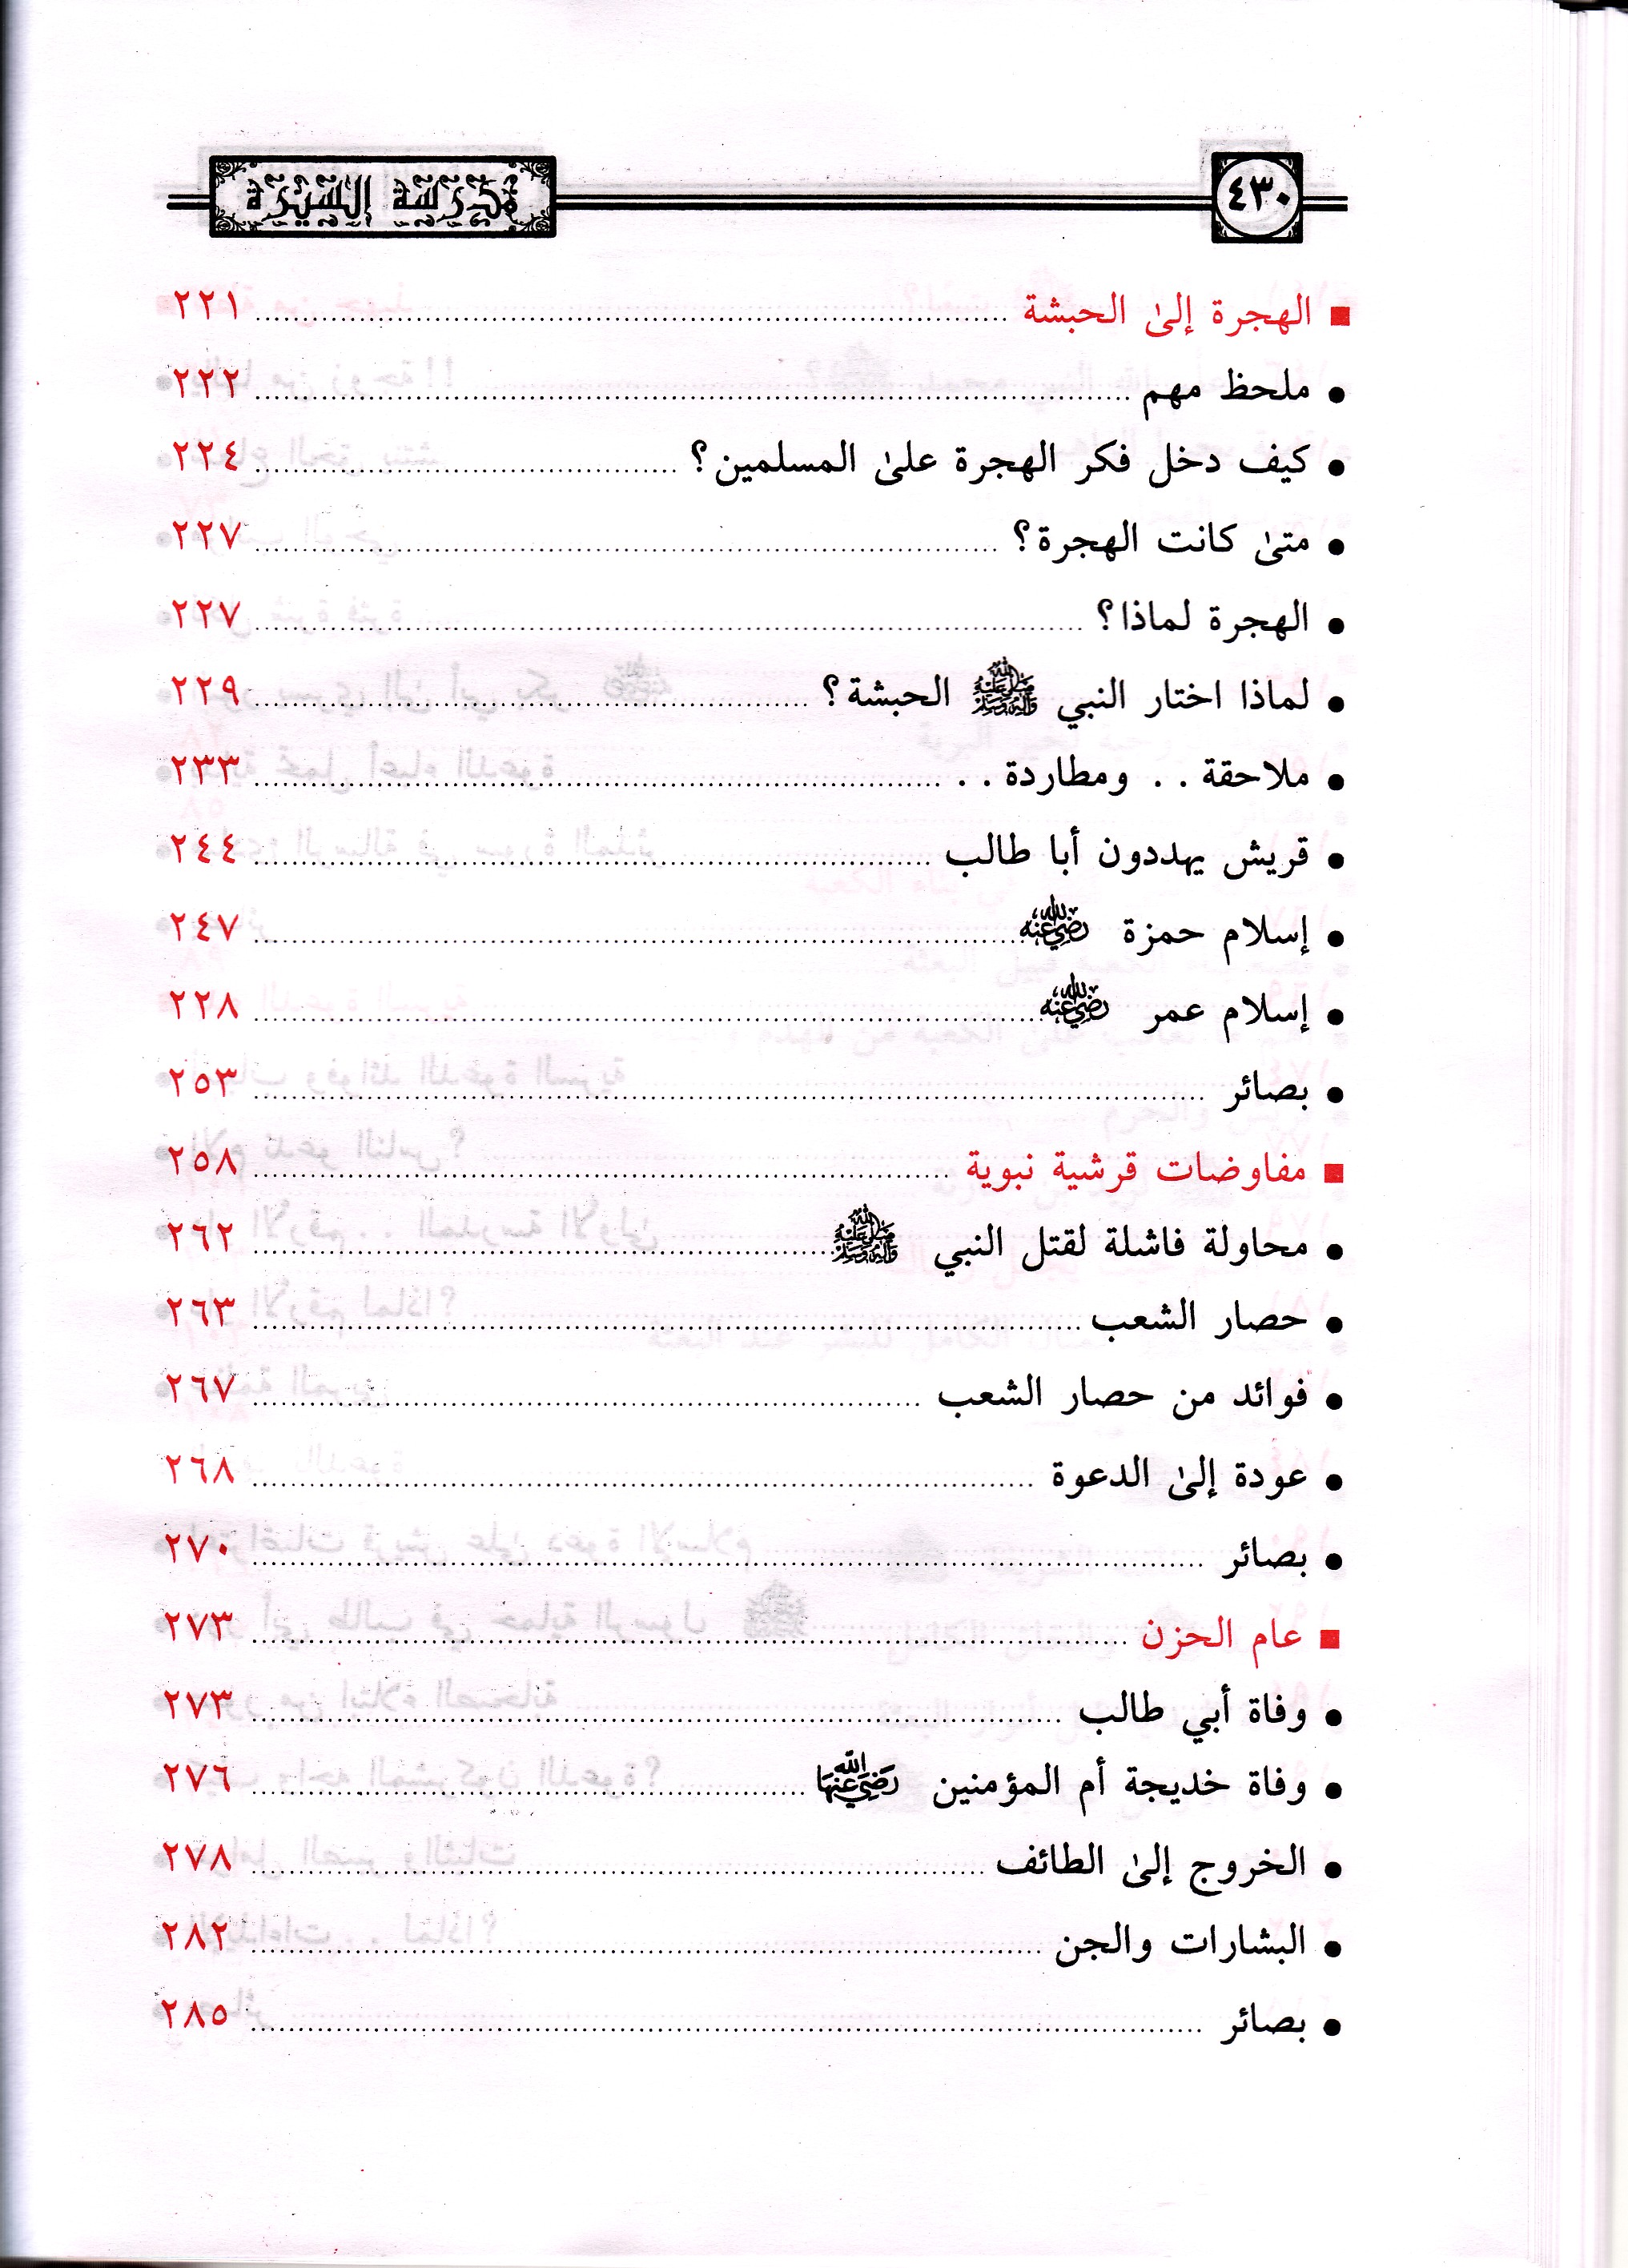 ٤٣٠ مدرسة السيرة
■ الهجرة إلىٰ الحبشة ........ ٢٢١
● ملحظ مهم ........ ٢٢٢
● كيف دخل فكر الهجرة علىٰ المسلمين؟ ........ ٢٢٤
● متىٰ كانت الهجرة؟ ........ ٢٢٧
● الهجرة لماذا؟ ........ ٢٢٧
● لماذا اختار النبي ﷺ الحبشة؟ ........ ٢٢٩
● ملاحقة . . ومطاردة . . ........ ٢٣٣
● قريش يهددون أبا طالب ........ ٢٤٤
● إسلام حمزة رضي الله عنه ........ ٢٤٧
● إسلام عمر رضي الله عنه ........ ٢٢٨
● بصائر ........ ٢٥٣
■ مفاوضات قرشية نبوية ........ ٢٥٨
● محاولة فاشلة لقتل النبي ﷺ ........ ٢٦٢
● حصار الشعب ........ ٢٦٣
● فوائد من حصار الشعب ........ ٢٦٧
● عودة إلىٰ الدعوة ........ ٢٦٨
● بصائر ........ ٢٧٠
■ عام الحزن ........ ٢٧٣
● وفاة أبي طالب ........ ٢٧٣
● وفاة خديجة أم المؤمنين رَضِيَ اللَّه عَنْهَا ........ ٢٧٦
● الخروج إلىٰ الطائف ........ ٢٧٨
● البشارات والجن ........ ٢٨٢
● بصائر ........ ٢٨٥